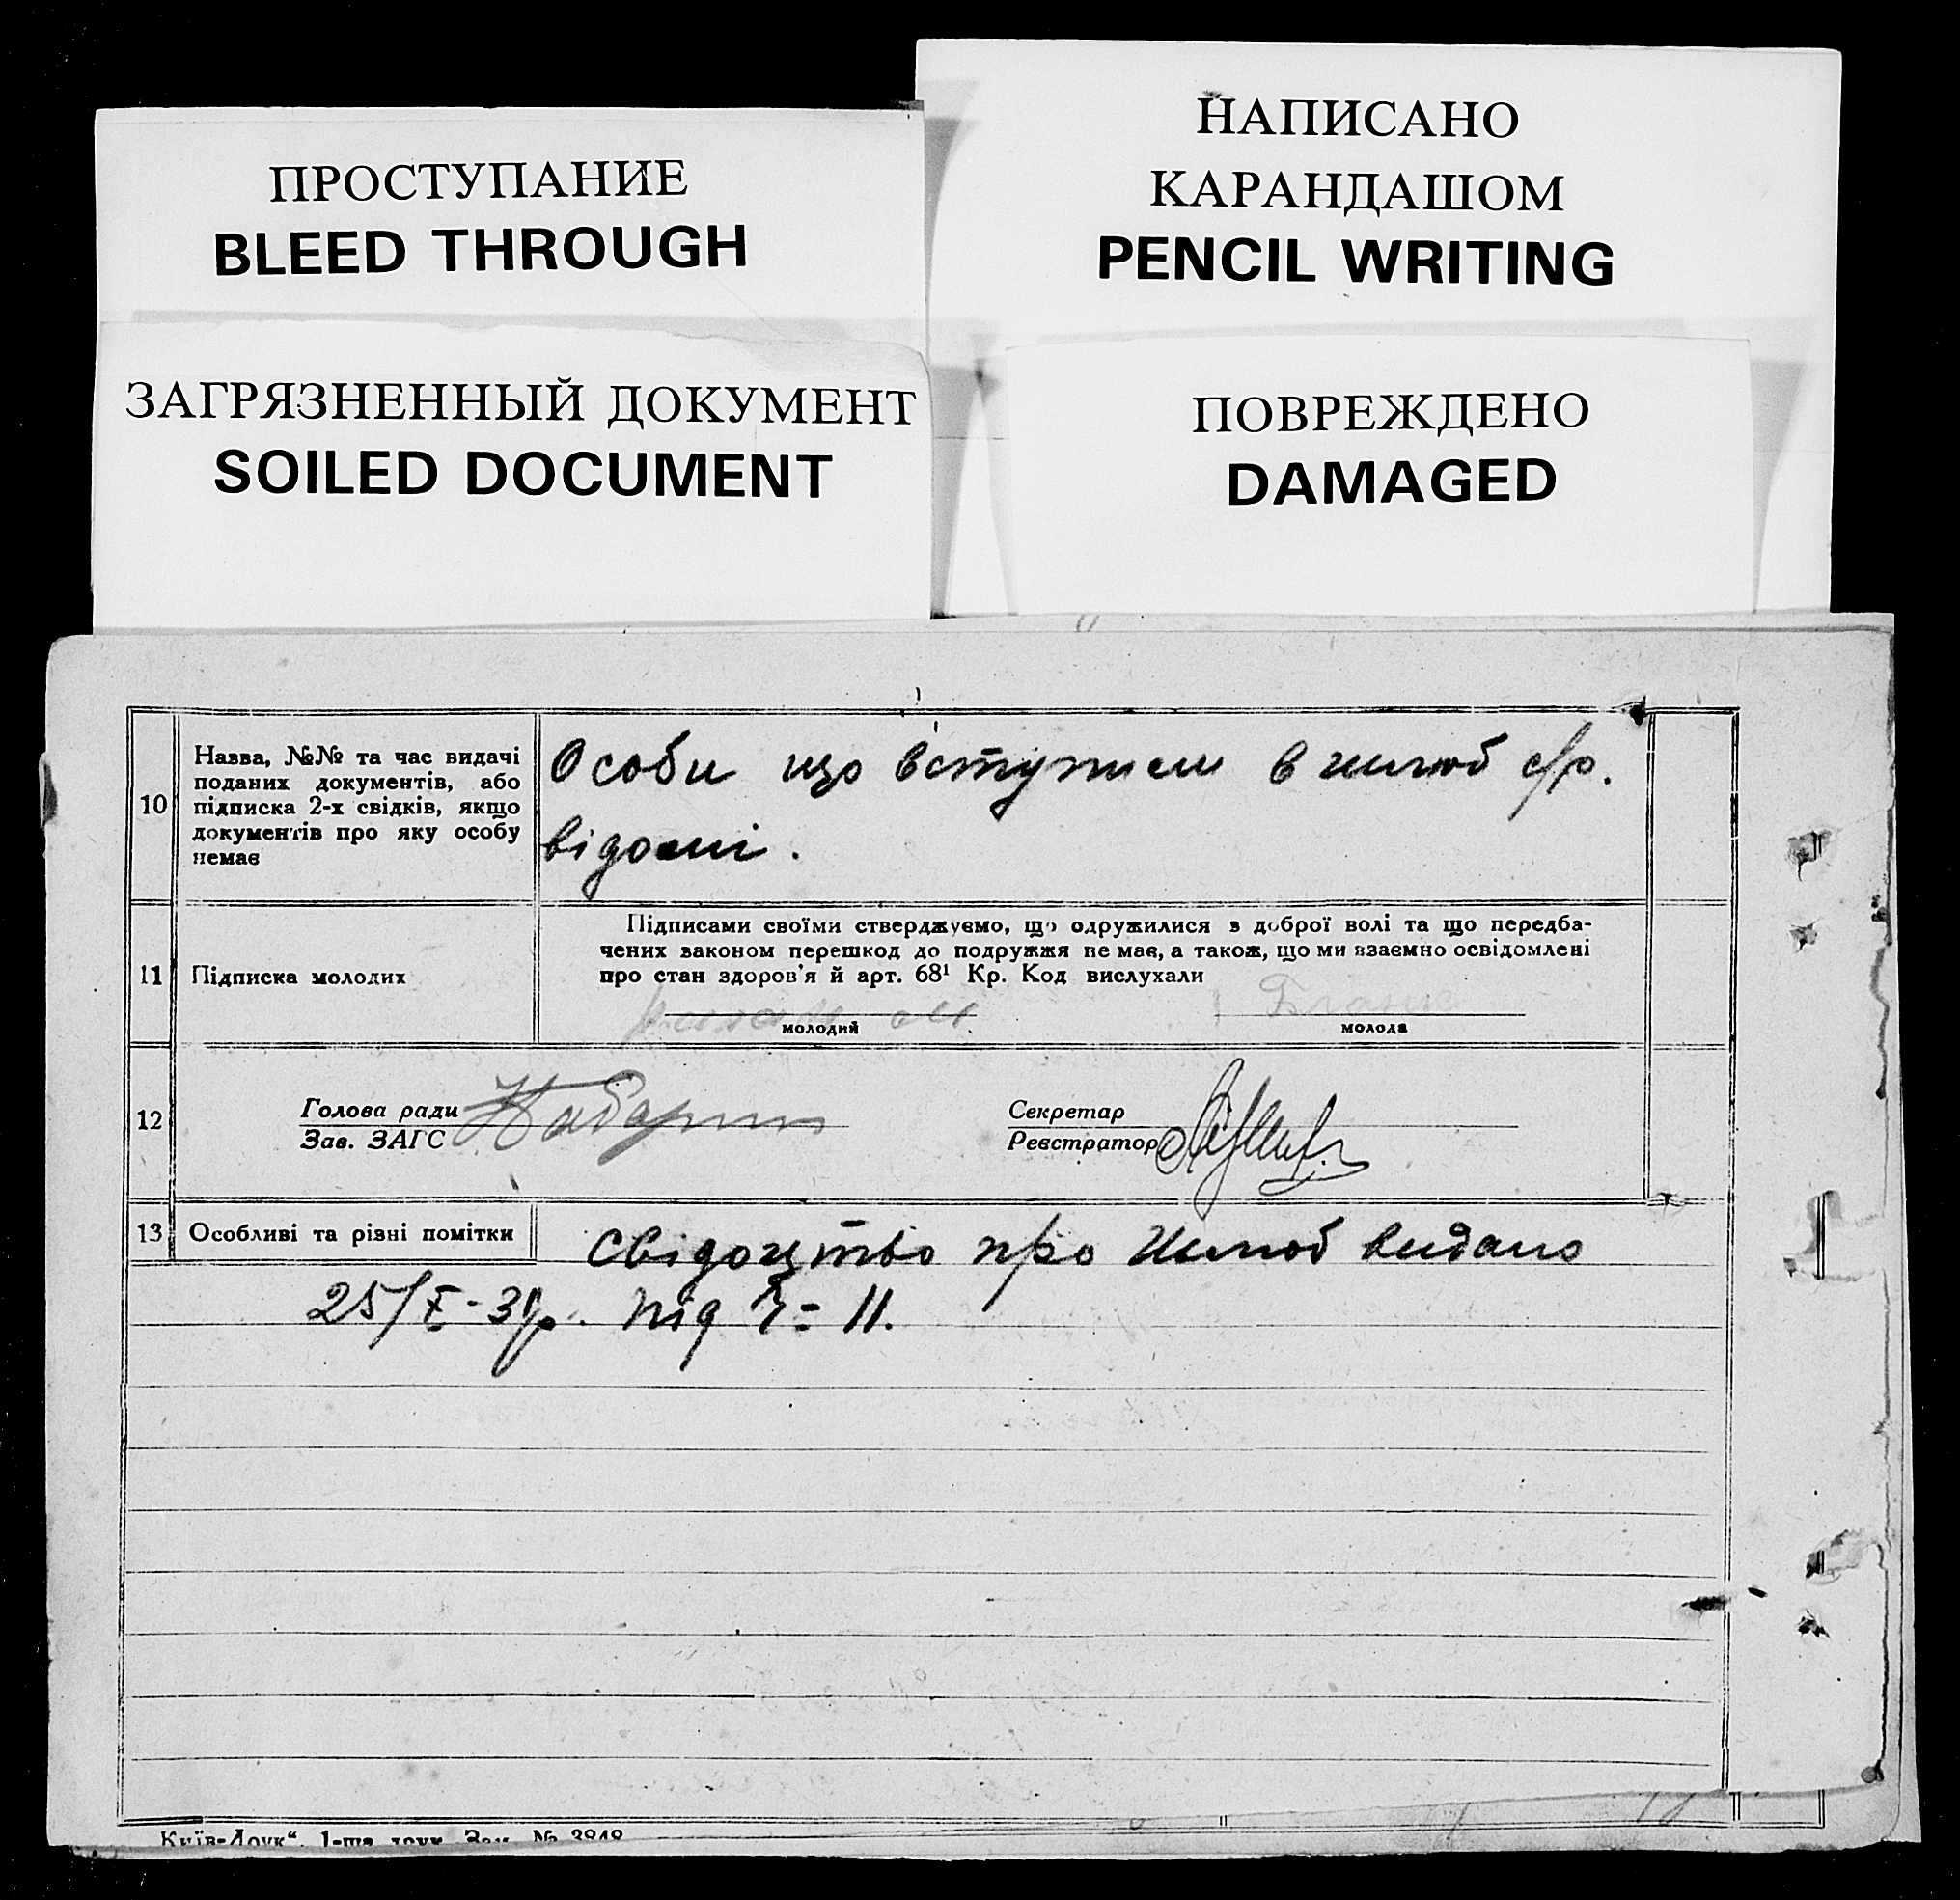 ПРОСТУПАНИЕ
BLEED THROUGH
НАПИСАНО
КАРАНДАШОМ
PENCIL WRITING
ЗАГРЯЗНЕННЫЙ ДОКУМЕНТ
SOILED DOCUMENT
ПОВРЕЖДЕНО
DAMAGED
10
Назва, №№ та час видачі
поданих документів, або
підписка 2-х свідків, якщо
документів про яку особу
немає
Особи що вступили в шлюб с/р.
відомі.
11
Підписка молодих
Підписами своїми стверджуємо, що одружилися з доброї волі та що передба-
чених законом перешкод до подружжя не має, а також, що ми взаємно освідомлені
про стан здоров'я й арт. 68¹ Кр. Код вислухали
молодий
молода
12
Голова ради
Зав. ЗАГС
Секретар
Реєстратор
13
Особливі та різні помітки
Свідоцтво про шлюб видано
25/X- під 11.
Київ-Друк", 1-ша друк. Зам. № 3848